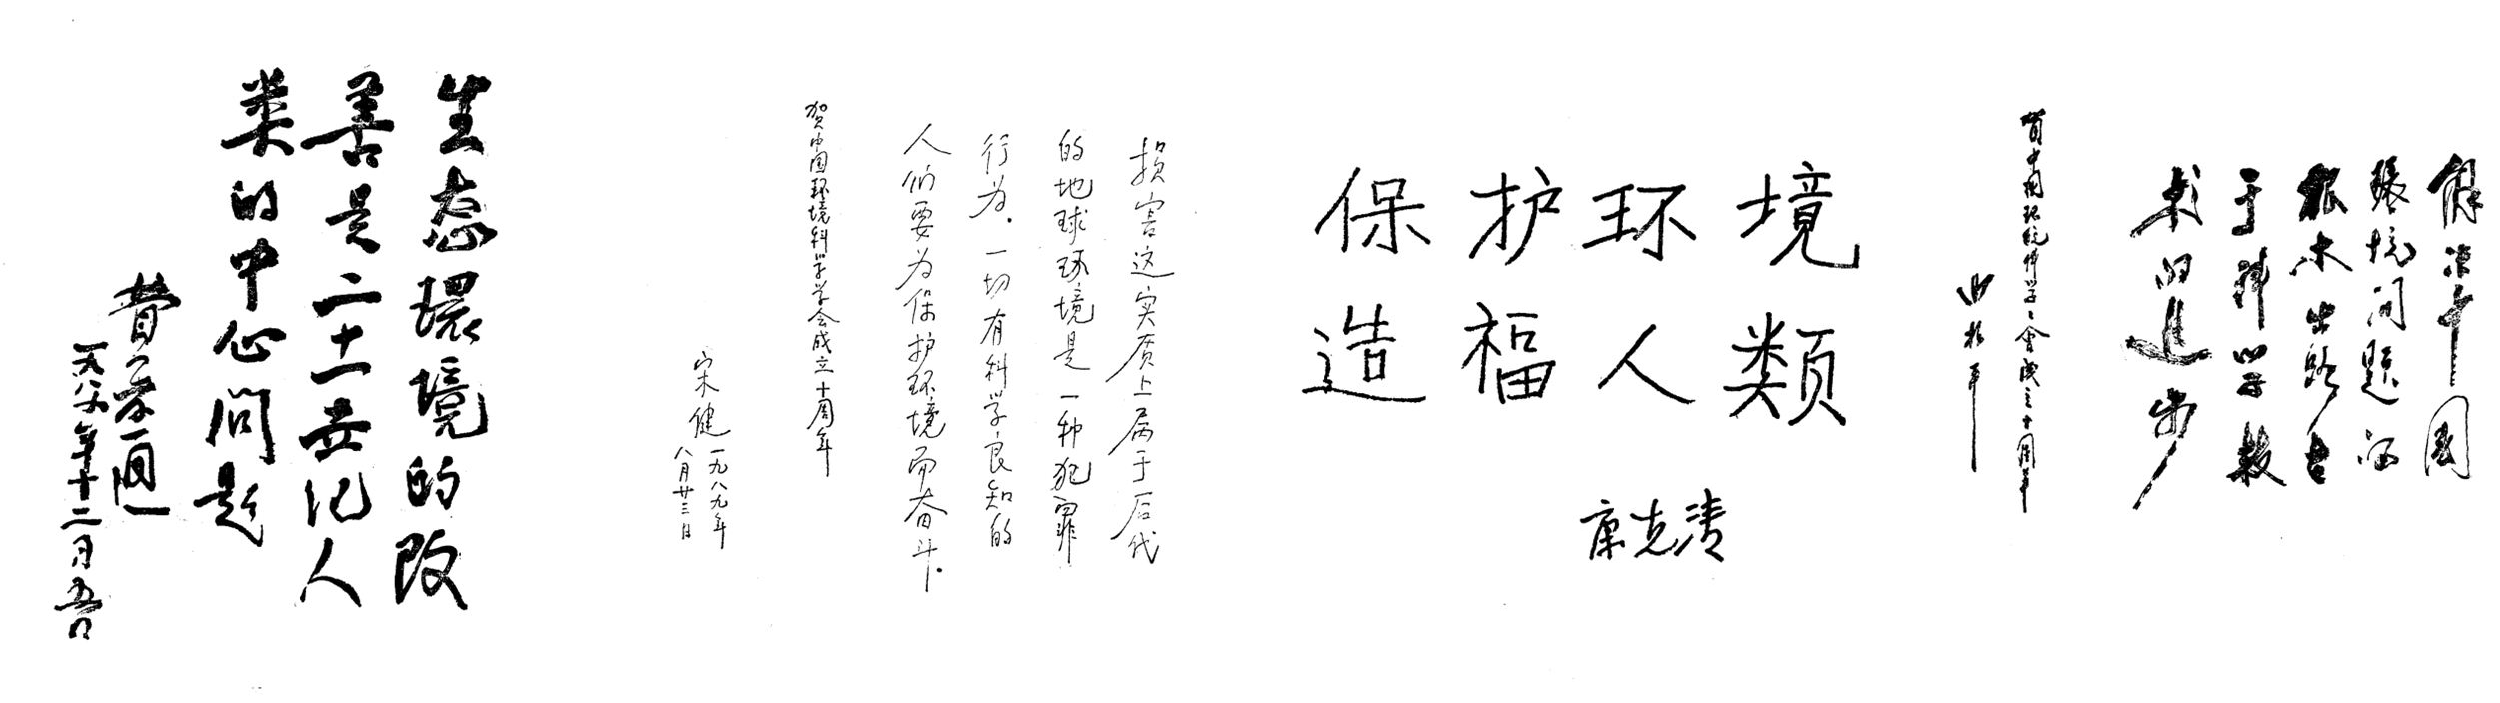 解决中国
环境问题的
根本出路在
于科学技
术的進步
贺中国环境科学学会成立十周年
曲格平
保护环境
造福人类
康克清
损害这实质上属于后代
的地球环境是一种犯罪
行为。一切有科学良知的
人们要为保护环境而奋斗。
贺中国环境科学学会成立十周年
宋健 一九八九年
八月廿三日
生态環境的改
善是二十一世纪人
类的中心問题
費孝通
一九八八年十二月五日